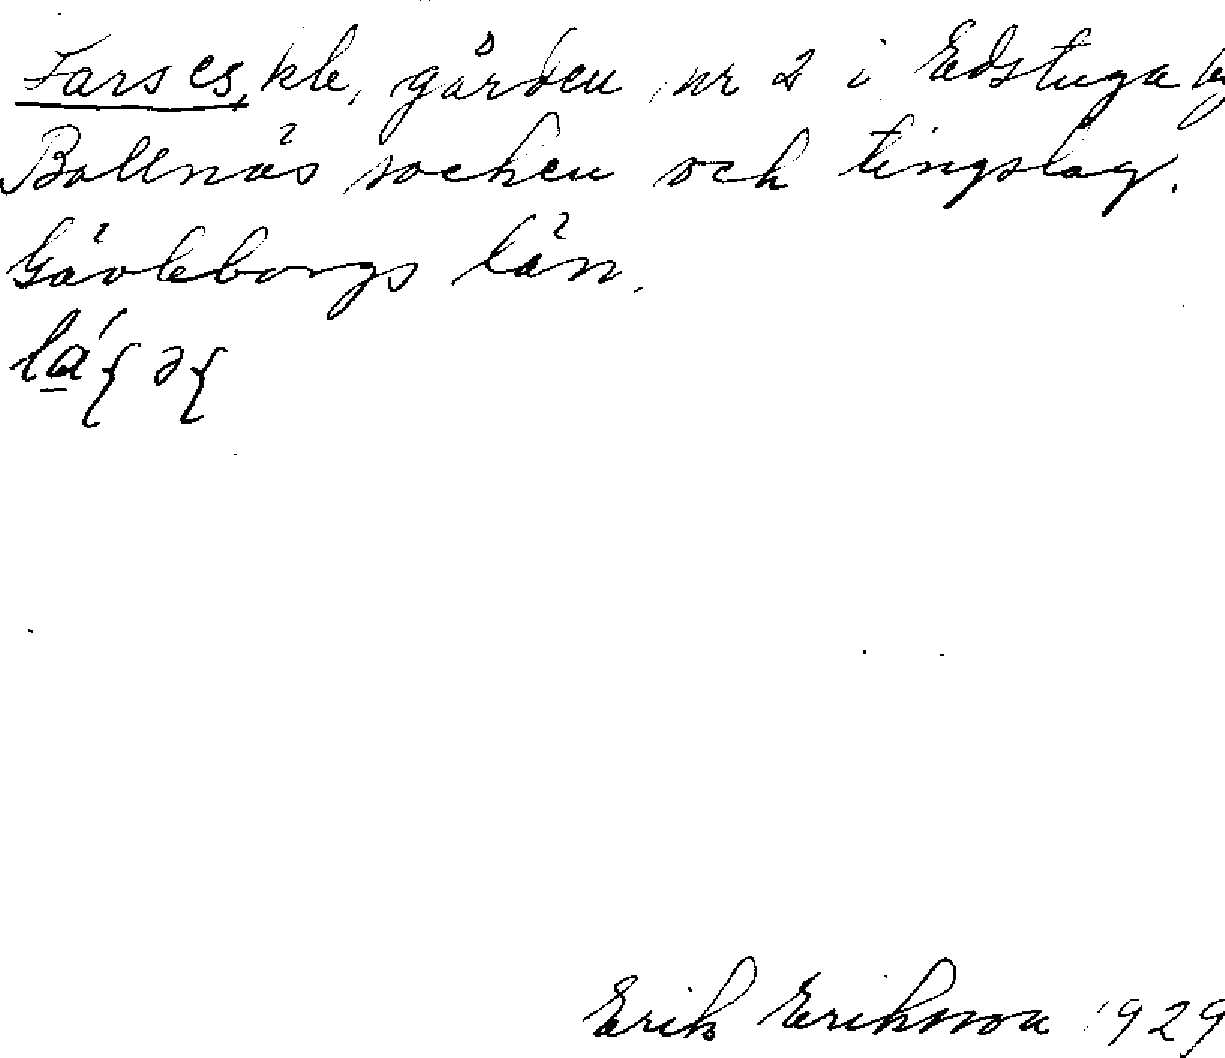 Lars es, kle, gården nr 2 i Edstuga by
Bollnäs socken och tingslag.
Gävleborgs län.
Erik Eriksson 1929